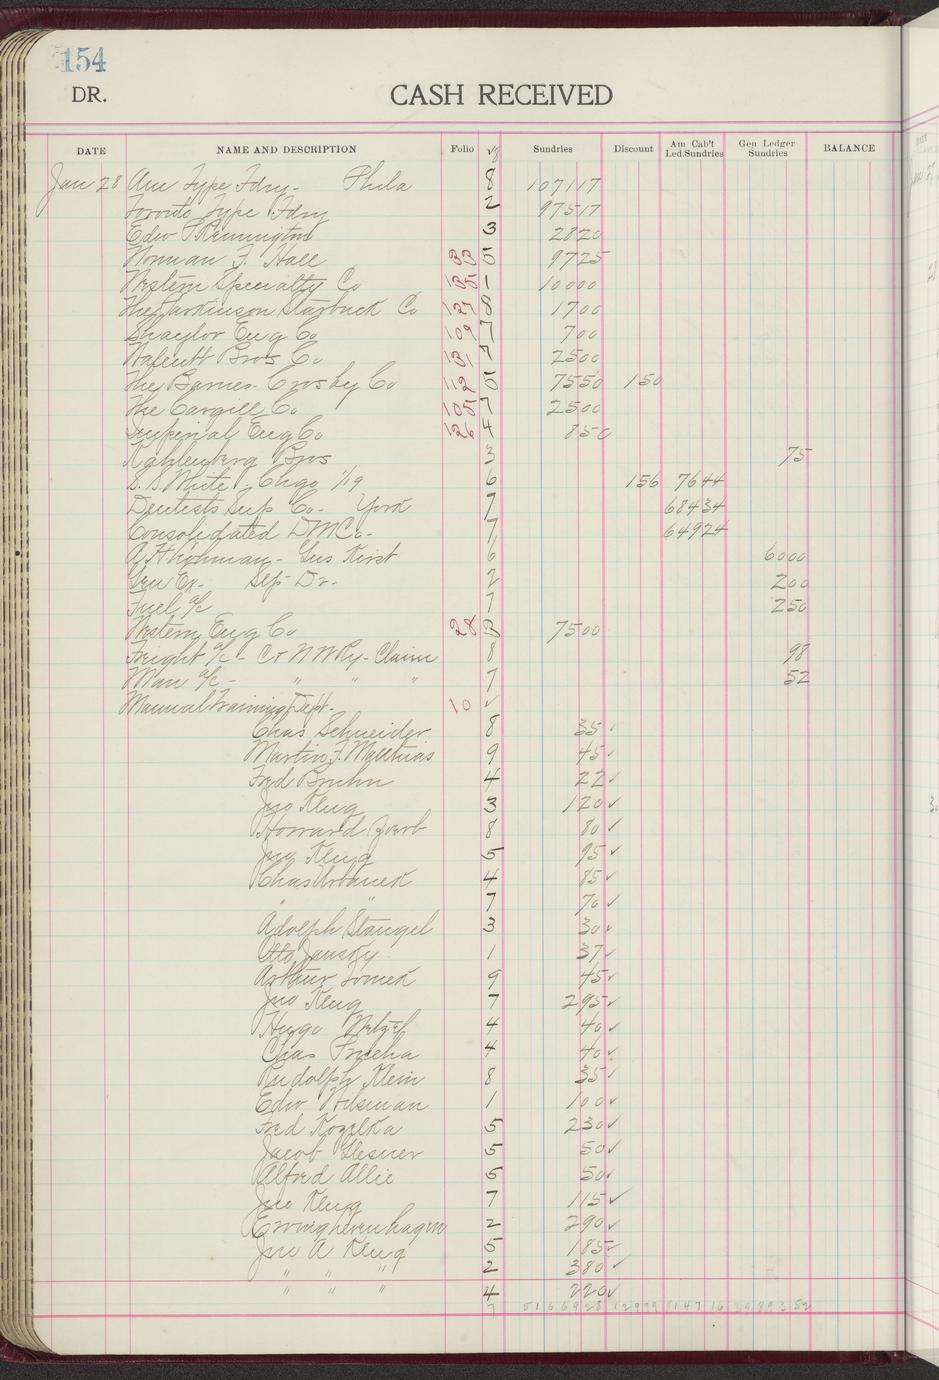 154
DR. CASH RECEIVED
DATE NAME AND DESCRIPTION Folio Sundries Discount Am Cab't Led.Sundries Gen Ledger Sundries BALANCE
Jan 28 Am Type Fdry- Phila 8 107117
Toronto Type Fdry 2 97517
Edw P Remington 3 2820
Norman F. Hall 33 5 9725
Western Specialty Co 1 10000
The Parkinson Starbuck Co 127 8 1700
Shaylor Eng Co 109 7 700
Bros Co 131 7 2500
The Barnes-Crosby Co 112 5 7550 150
The Cargill Co 105 7 2500
Imperial Eng Co 126 4 850
Kahlenberg Bros 3 75
S. S. White, Chgo 1/19 6 156 7644
Dentists Sup Co- York 7 68434
Consolidated D M Co- 7 64924
- Gus Kirst 6 6000
Gen Ex- Sep Dr- 2 200
Fuel a/c 7 250
Western Eng Co 28 3 7500
Freight a/c- Cr N W Ry- Claim 8 98
Man a/c- " " " 7 52
Manual Training Dept- 10 ✓
Chas Schneider 8 35 ✓
Martin F. Matthias 9 45 ✓
Fred Bruhn 4 22 ✓
Jno Klug 3 120 ✓
Howard Zoerb 8 80 ✓
Jno Klug 5 95 ✓
Chas Urbanek 4 85 ✓
" " 7 70 ✓
Adolph Stangel 3 30 ✓
Otto Jansky 1 37 ✓
Arthur Tomek 9 45 ✓
Jno Klug 7 295 ✓
Hugo 4 40 ✓
Chas 4 40 ✓
Rudolph Klein 8 35 ✓
Edw Wilsman 1 100 ✓
Fred Kozelka 5 230 ✓
Jacob Glesner 5 50 ✓
Alfred Allie 5 50 ✓
Jno Klug 7 115 ✓
2 290 ✓
Jno A Klug 5 185 ✓
" " " 2 380 ✓
" " " 4 220 ✓
7